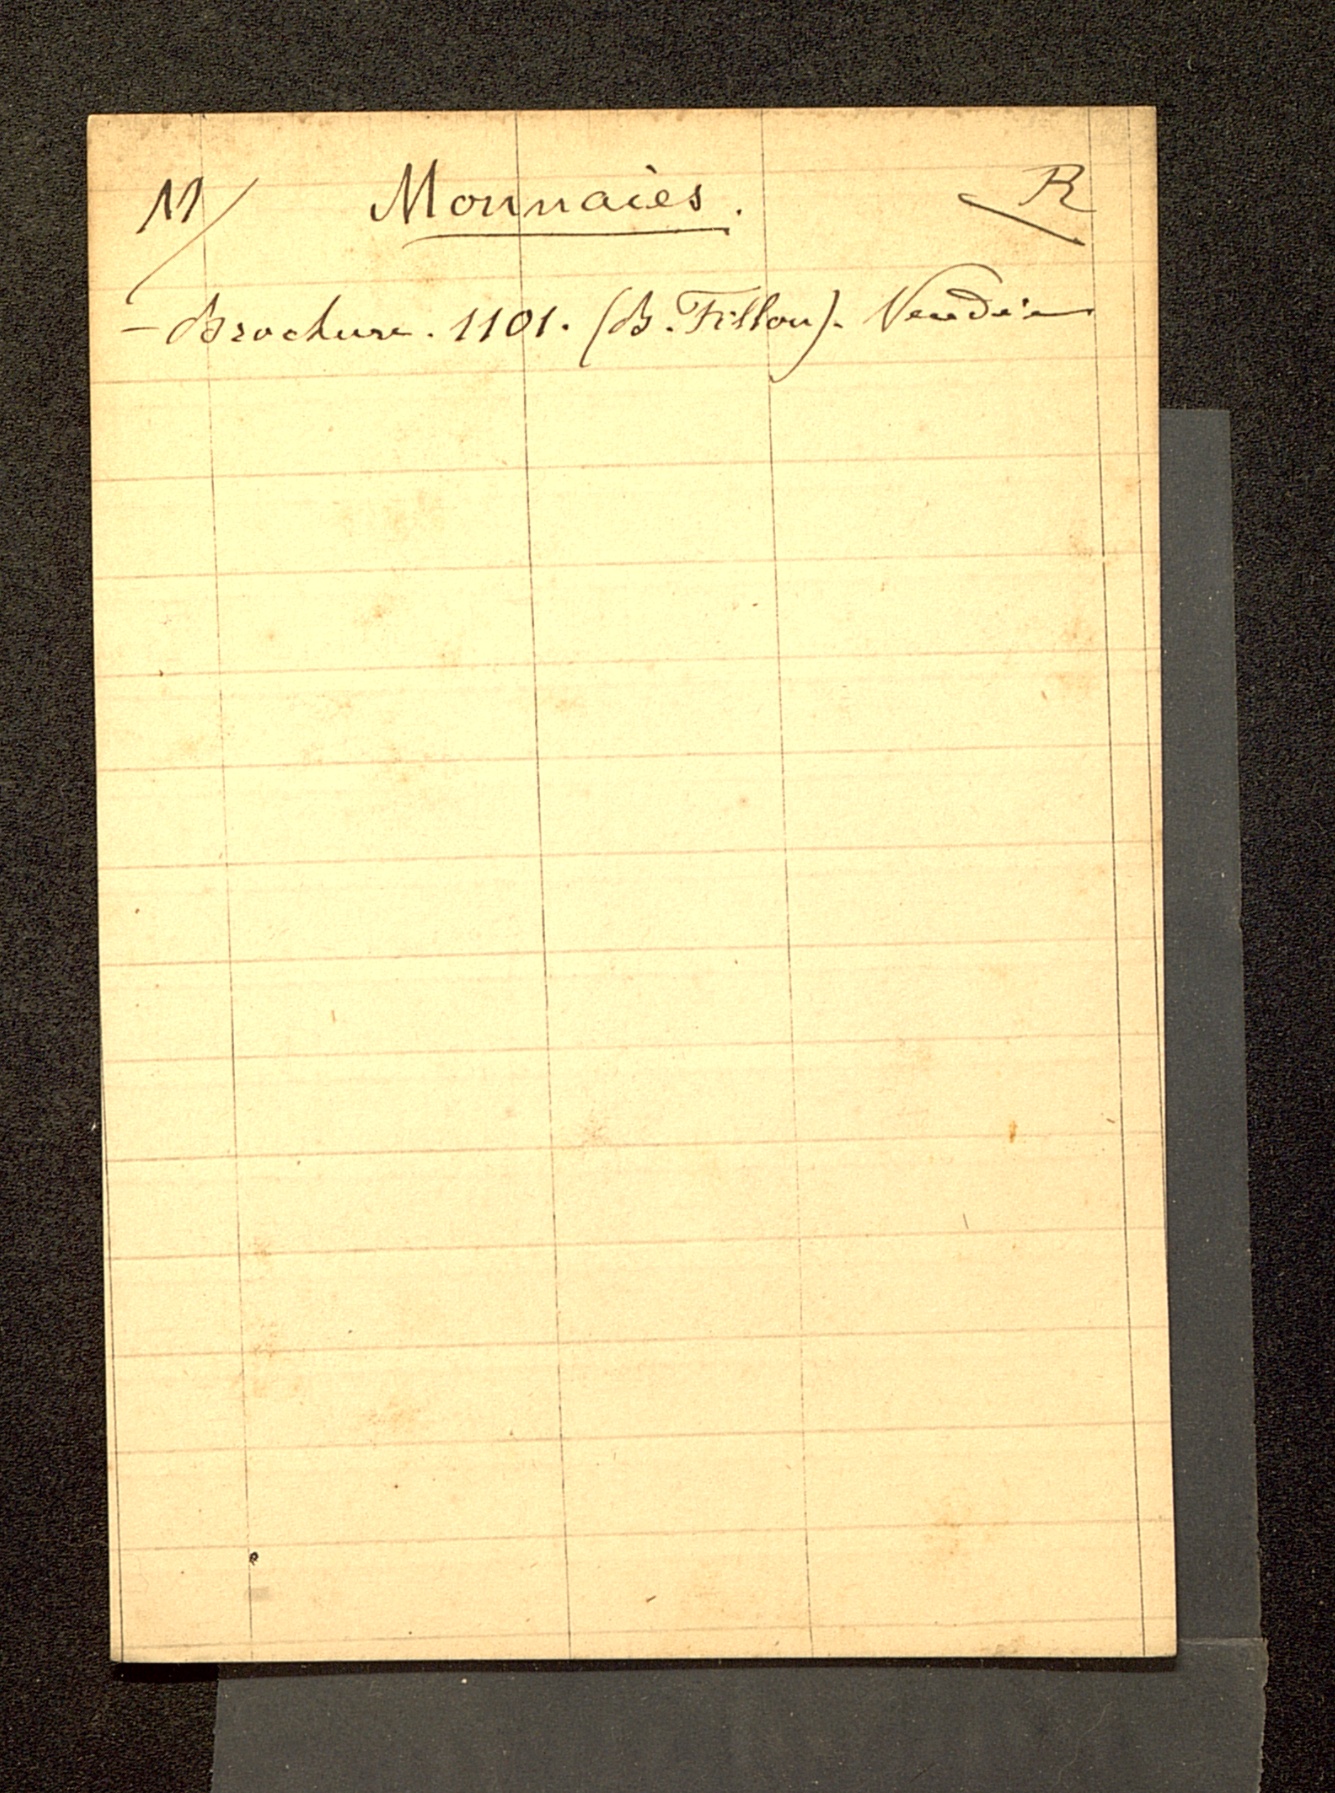 M Monnaies. R
- Brochure. 1101. (B. Fillon). Vendée